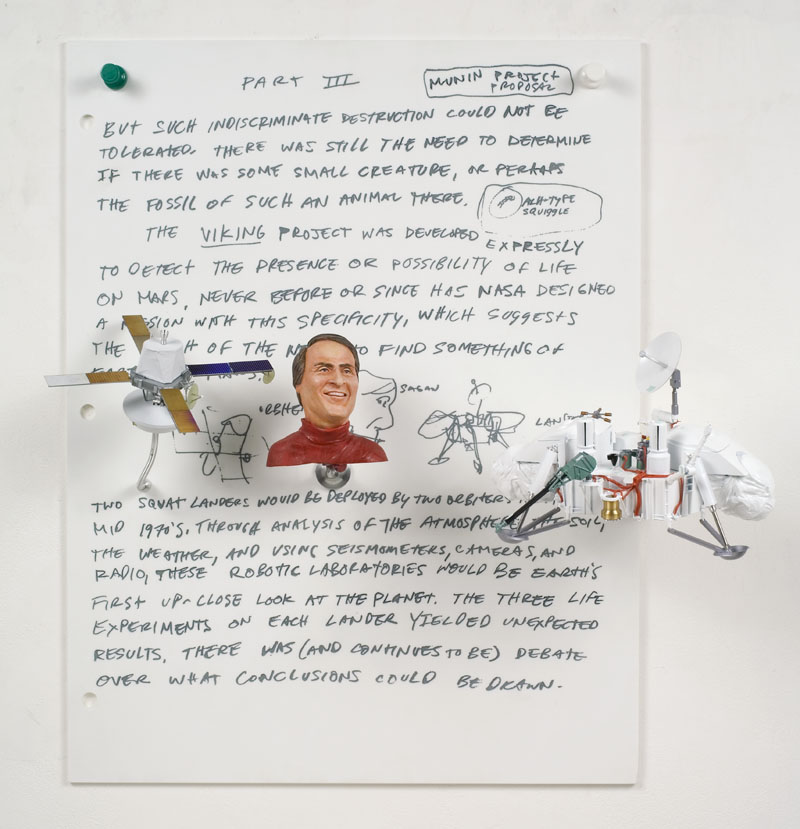 PART III
MUNIN PROJECT
PROPOSAL
BUT SUCH INDISCRIMINATE DESTRUCTION COULD NOT BE
TOLERATED. THERE WAS STILL THE NEED TO DETERMINE
IF THERE WAS SOME SMALL CREATURE, OR PERHAPS
THE FOSSIL OF SUCH AN ANIMAL THERE.
ALH-TYPE
SQUIGGLE
THE VIKING PROJECT WAS DEVELOPED EXPRESSLY
TO DETECT THE PRESENCE OR POSSIBILITY OF LIFE
ON MARS, NEVER BEFORE OR SINCE HAS NASA DESIGNED
A MISSION WITH THIS SPECIFICITY, WHICH SUGGESTS
THE OF THE TO FIND SOMETHING OF
SAGAN
TWO SQUAT LANDERS WOULD BE DEPLOYED BY TWO ORBITERS
MID 1970'S. THROUGH ANALYSIS OF THE ATMOSPHERE, THE SOIL,
THE WEATHER, AND USING SEISMOMETERS, CAMERAS, AND
RADIO, THESE ROBOTIC LABORATORIES WOULD BE EARTH'S
FIRST UP-CLOSE LOOK AT THE PLANET. THE THREE LIFE
EXPERIMENTS ON EACH LANDER YIELDED UNEXPECTED
RESULTS. THERE WAS (AND CONTINUES TO BE) DEBATE
OVER WHAT CONCLUSIONS COULD BE DRAWN.